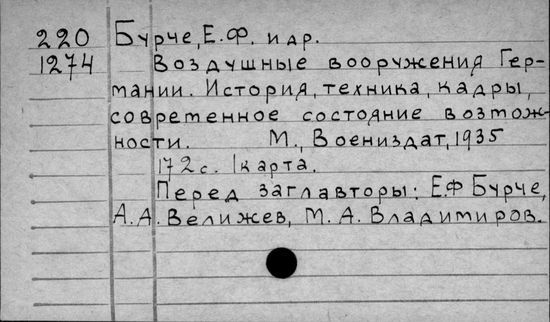 220 Бурче, Е.Ф. и др.
1274 Воздушные вооружения Гер-
мании. История, техника, кадры,
современное состояние возмож-
ности. М., Воениздат, 1935
172 с. 1 карта.
Перед заглавторы: Е.Ф Бурче,
А.А. Велижев, М.А. Владимиров.